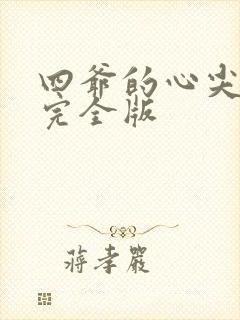 四爷的心尖
完全版
蒋孝严